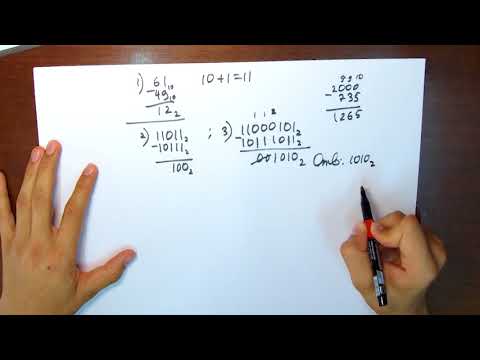 1) 61₁₀
-49₁₀
12₂
10+1=11
9 9 10
2000
-735
1265
2) 11011₂ ;
-10111₂
100₂
1 1 2
3) 11000101₂
-10111011₂
001010₂ Отв: 1010₂